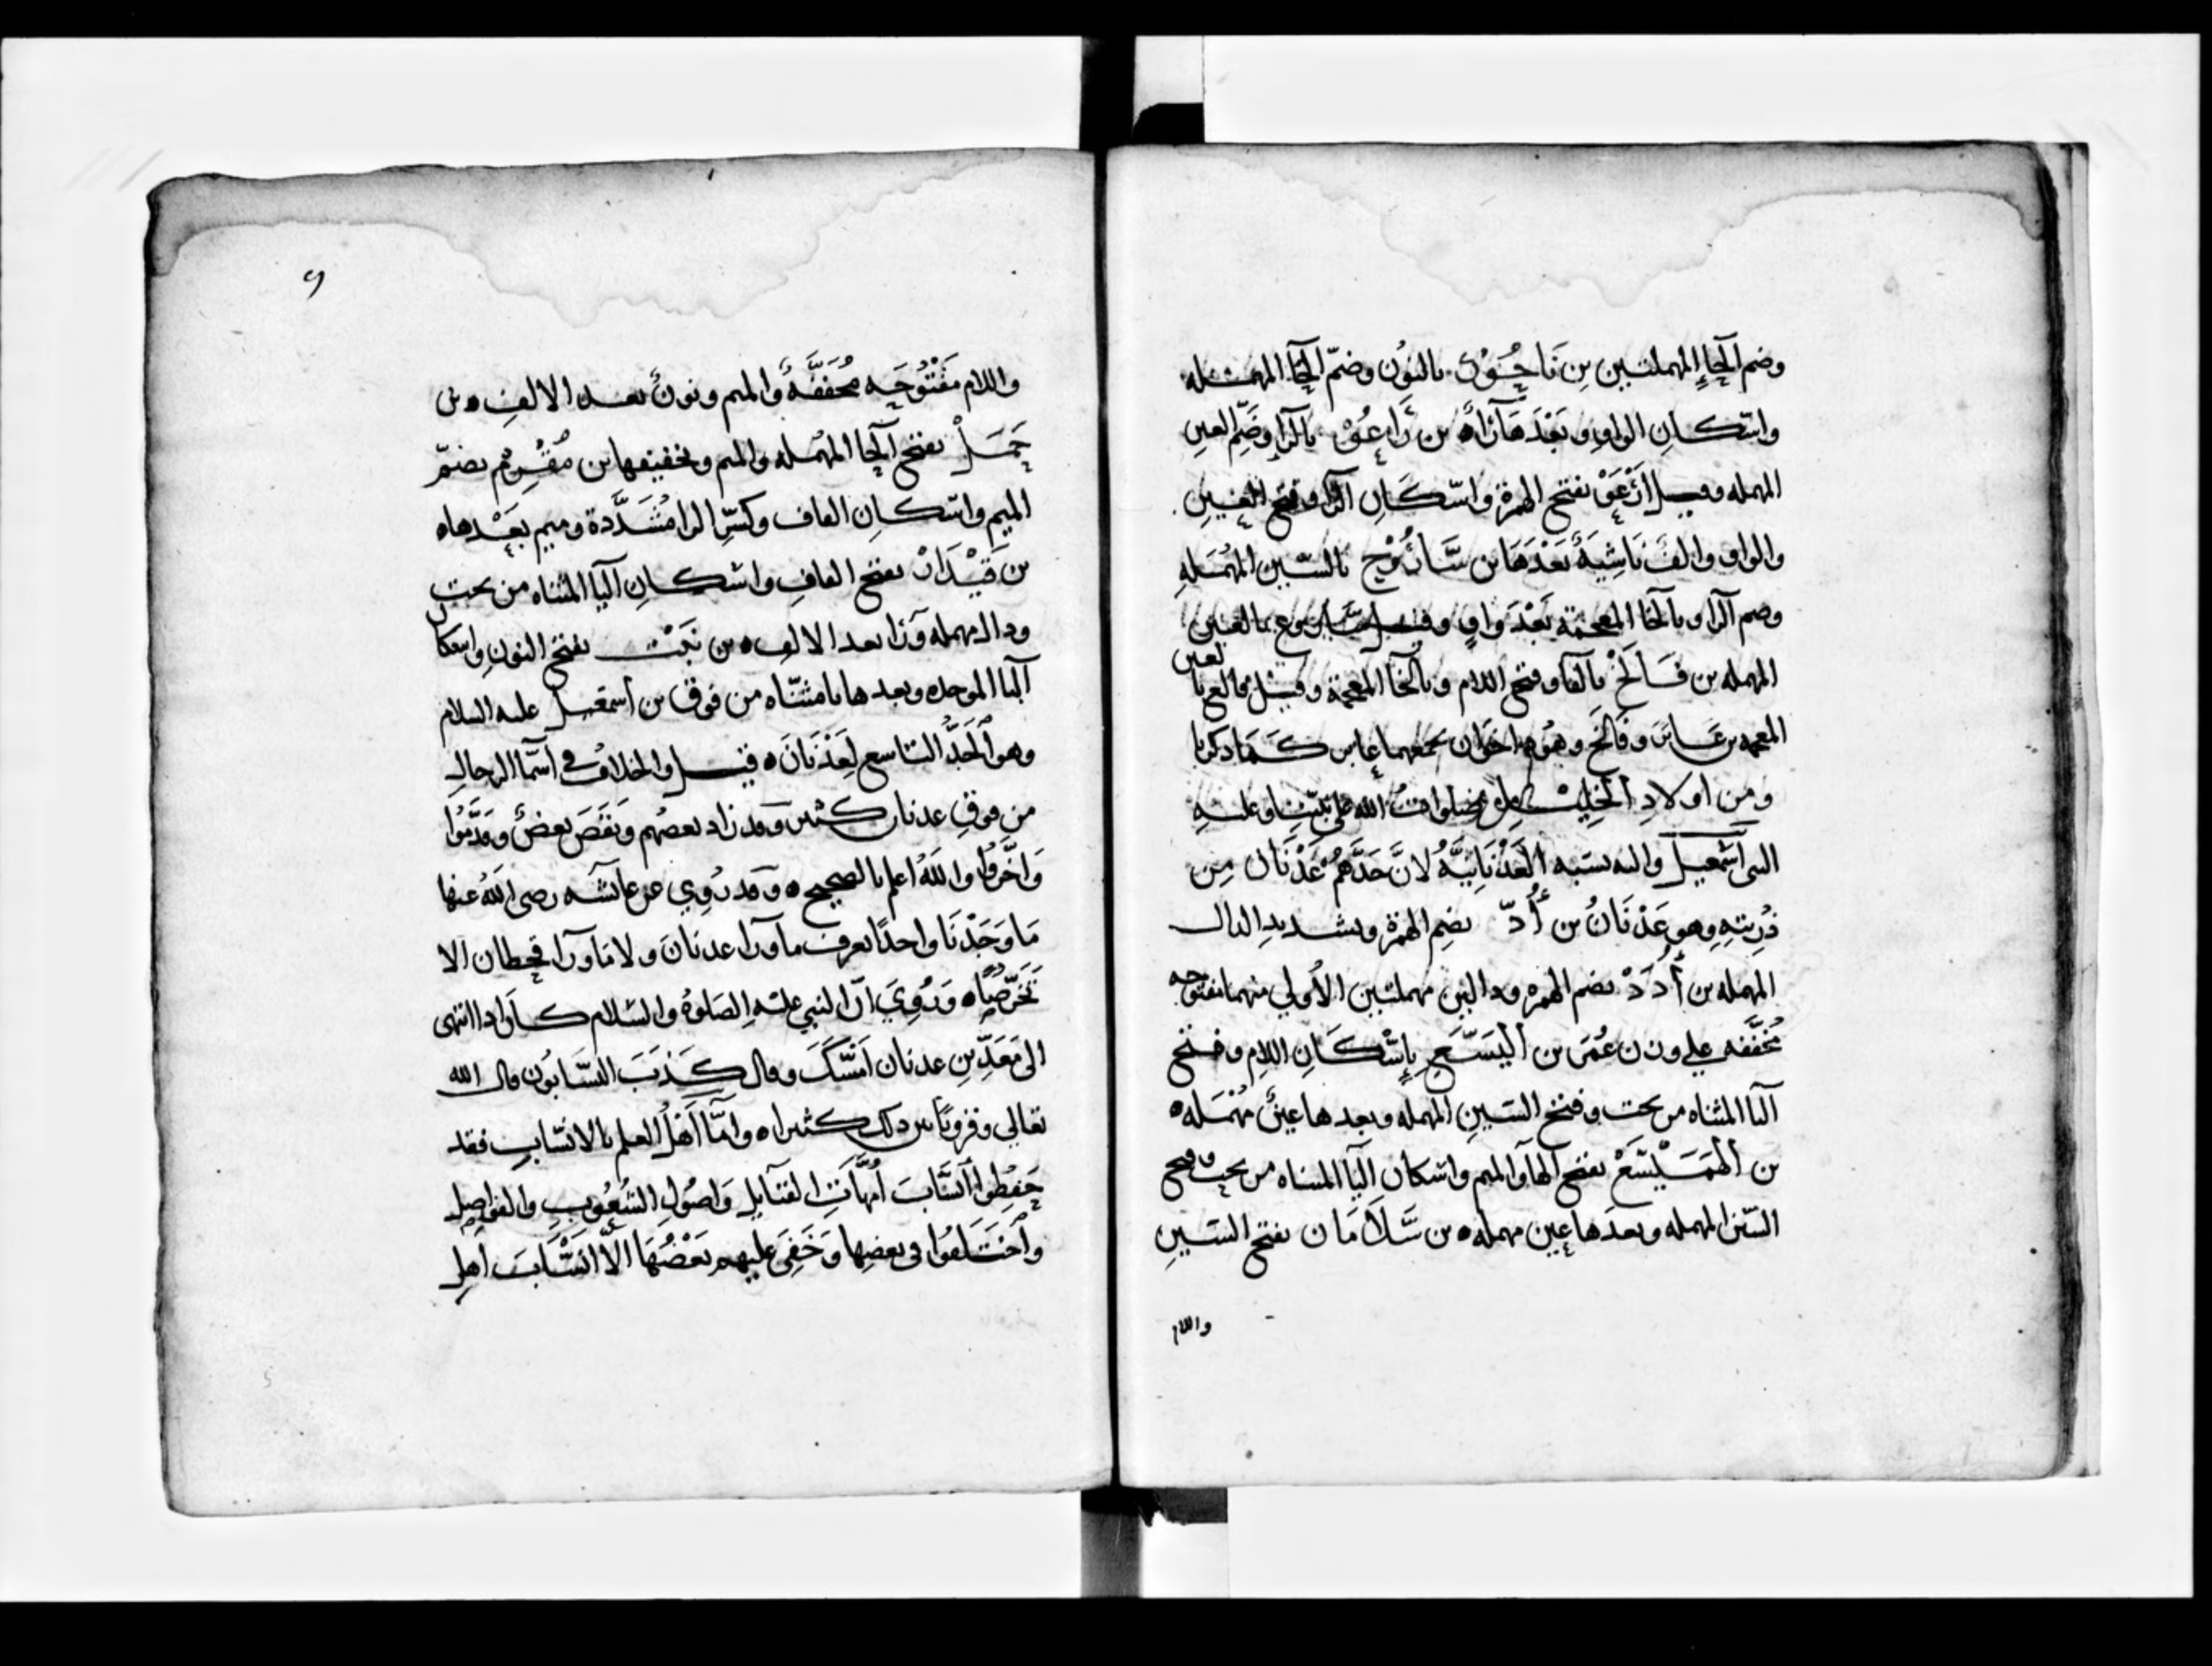 وضم الحاء المهملتين بن نَاحُوْر بالنون وضمّ الحا المهمله
واسكان الواو وبَعْدَهَا رَاء بن رَاعُوْ بالرا وضَمِّ العين
المهمله وقيل ارْعَوْ بفتح الهمزة واسْكَانِ الرا وفتح العين
والواو والفٌ نَاشِيَةٌ بَعْدَهَا بن سَارُوْح بالسّين المهُمَلهِ
وضم الرا وبالخا المعجمة بَعْدَ وَاوٍ وقيل سارُوع بالعين
المهمله بن فَالَخْ بالفا وفتح اللام وبالخا المعجمة وقيل فالغ بالغين
المعجمه بن عَابَر وفَالَخ وهُود اخَوان يجمعهما عابر كَمَا ذكرنا
ومِن اولادِ الخَلِيْل صلوات الله على نبيّنا وعليه
النبى اسْمعيل واليه نسبه العَدْنَانِيَّةُ لانَّ جَدَّهُمْ عَدْنَان مِن
ذُرِيتهِ وهو عَدْنَانُ بن أُدّ بضم الهمزة وتشديدِ الدال
المهمله بن أُدَدْ بضم الهمزه ودالين مهملتين الأولي منهما مفتوحه
مُخَفَّفه علي وزن عُمَر بن اليَسَع بإسْكَانِ اللام وفتح
اليا المثناه من تحت وفتح السّينِ المهمله وبعدها عينٌ مُهْمَله ه
بن الهَمَيْسَعْ بفتح الها والميم واسكان اليا المثناه من تحت وفتح
السّين المهمله وبعدَها عين مهمله ه بن سَلَامَان بفتح السّينِ
واللام
و
واللام مَفْتُوحَه مُخَفَّفَةٌ والميم ونونٌ بعد الالفِ ه بن
حَمَلْ بفتح الحا المهُمله والميم وتخفيفها بن مُقَرِّم بضمّ
الميم واسكانِ القاف وكَسْرِ الرا مُشَدَّدة وميم بَعْدها ه
بن قَيْدَارْ بفتح القافِ واسْكانِ اليا المثناه من تحت
ودال مهمله وَرَا بعد الالف ه بن نَبَتْ بفتح النون واسكان
البا الموحده وبعدها تا مثنّاه من فوق بن اسمعيل عليه السلام
وهو الجَدُّ التاسع لعَدْنَانَ ه قيل والخلافُ فى اسما الرجالِ
من فوق عدنان كثير وقد زاد بعضُهم ونَقَصَ بعضٌ وقدَّمُوا
وَاخَّرُوا والله اعلم بالصحيح ه وقد رُوِي عن عائشه رضى الله عنها
مَا وَجَدْنَا واحدًا يعرف ما ورا عدنانَ ولا مَا ورا قحطان الا
تَخَرُّصًا ه وَرُوِيَ انّ النبي عليه الصلوةُ والسّلام كَان اذا انتهى
الى مَعَدِّ بنِ عدنان امْسَكَ وقال كَذَبَ النسّابُون قال الله
تعالي وقرونًا بين ذلك كثيرا ه وامّا اهْلُ العلم بالانسَابِ فقد
حَفِظُوا انسَابَ أمّهَاتِ القبَايلِ وَاصُولِ الشُعُوبِ والفواصِلِ
واخْتَلَفُوا فى بعضِها وَخَفِيَ عليهم بَعْضُهَا الّا انْسَابَ اهل